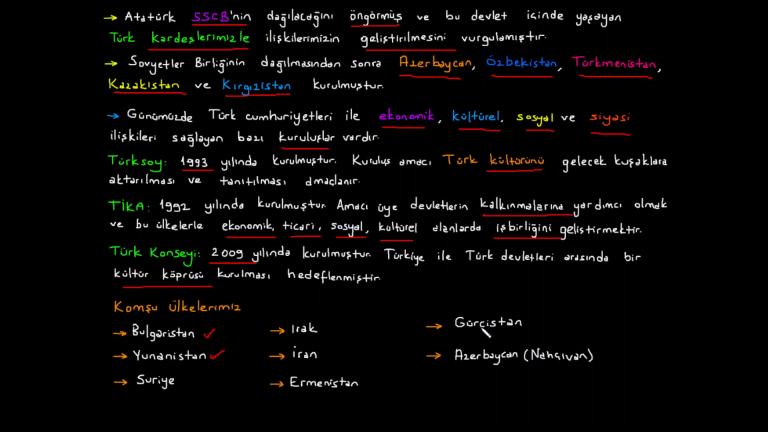 → Atatürk SSCB'nin dağılacağını öngörmüş ve bu devlet içinde yaşayan
Türk Kardeşlerimizle ilişkilerimizin geliştirilmesini vurgulamıştır.
→ Sovyetler Birliğinin dağılmasından sonra Azerbaycan, Özbekistan, Türkmenistan,
Kazakistan ve Kırgızistan kurulmuştur.
→ Günümüzde Türk cumhuriyetleri ile ekonomik, kültürel, sosyal ve siyasi
ilişkileri sağlayan bazı kuruluşlar vardır.
Türksoy: 1993 yılında kurulmuştur. Kuruluş amacı Türk kültürünü gelecek kuşaklara
aktarılması ve tanıtılması amaçlanır.
TİKA: 1992 yılında kurulmuştur. Amacı üye devletlerin kalkınmalarına yardımcı olmak
ve bu ülkelerle ekonomik, ticari, sosyal, kültürel alanlarda işbirliğini geliştirmektir.
Türk Konseyi: 2009 yılında kurulmuştur. Türkiye ile Türk devletleri arasında bir
kültür köprüsü kurulması hedeflenmiştir.
Komşu Ülkelerimiz
→ Bulgaristan ✓
→ Yunanistan ✓
→ Suriye
→ Irak
→ İran
→ Ermenistan
→ Gürcistan
→ Azerbaycan (Nahçıvan)